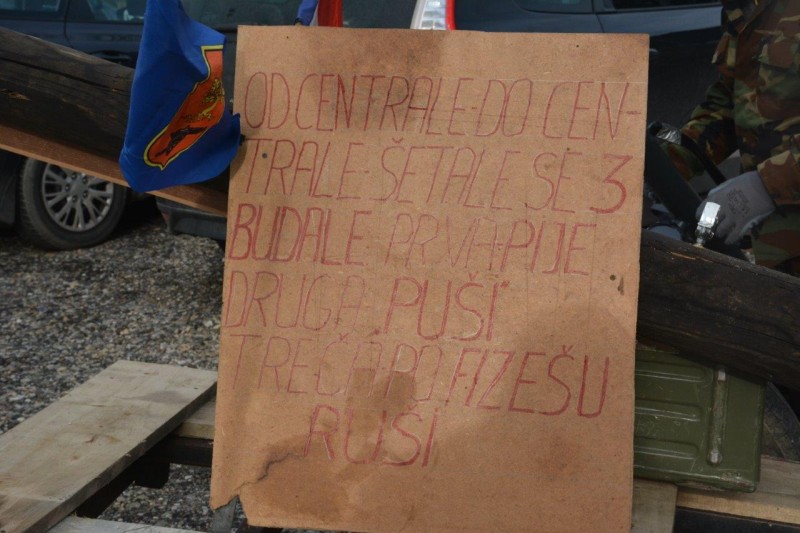 OD CENTRALE-DO CEN-
TRALE-ŠETALE SE 3
BUDALE PRVA PIJE
DRUGA PUŠI
TREČA PO FIZEŠU
RUŠI